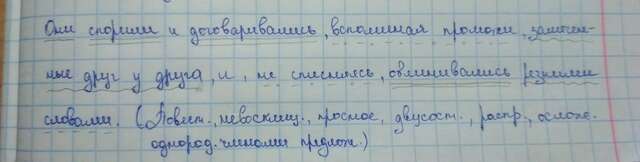 Они спорили и договаривались, вспоминая промахи, замечен-
ные друг у друга, и, не стесняясь, обменивались резкими
словами. (Повест., невосклиц., простое, двусост., распр., ослож.
однород. членами предлож.)